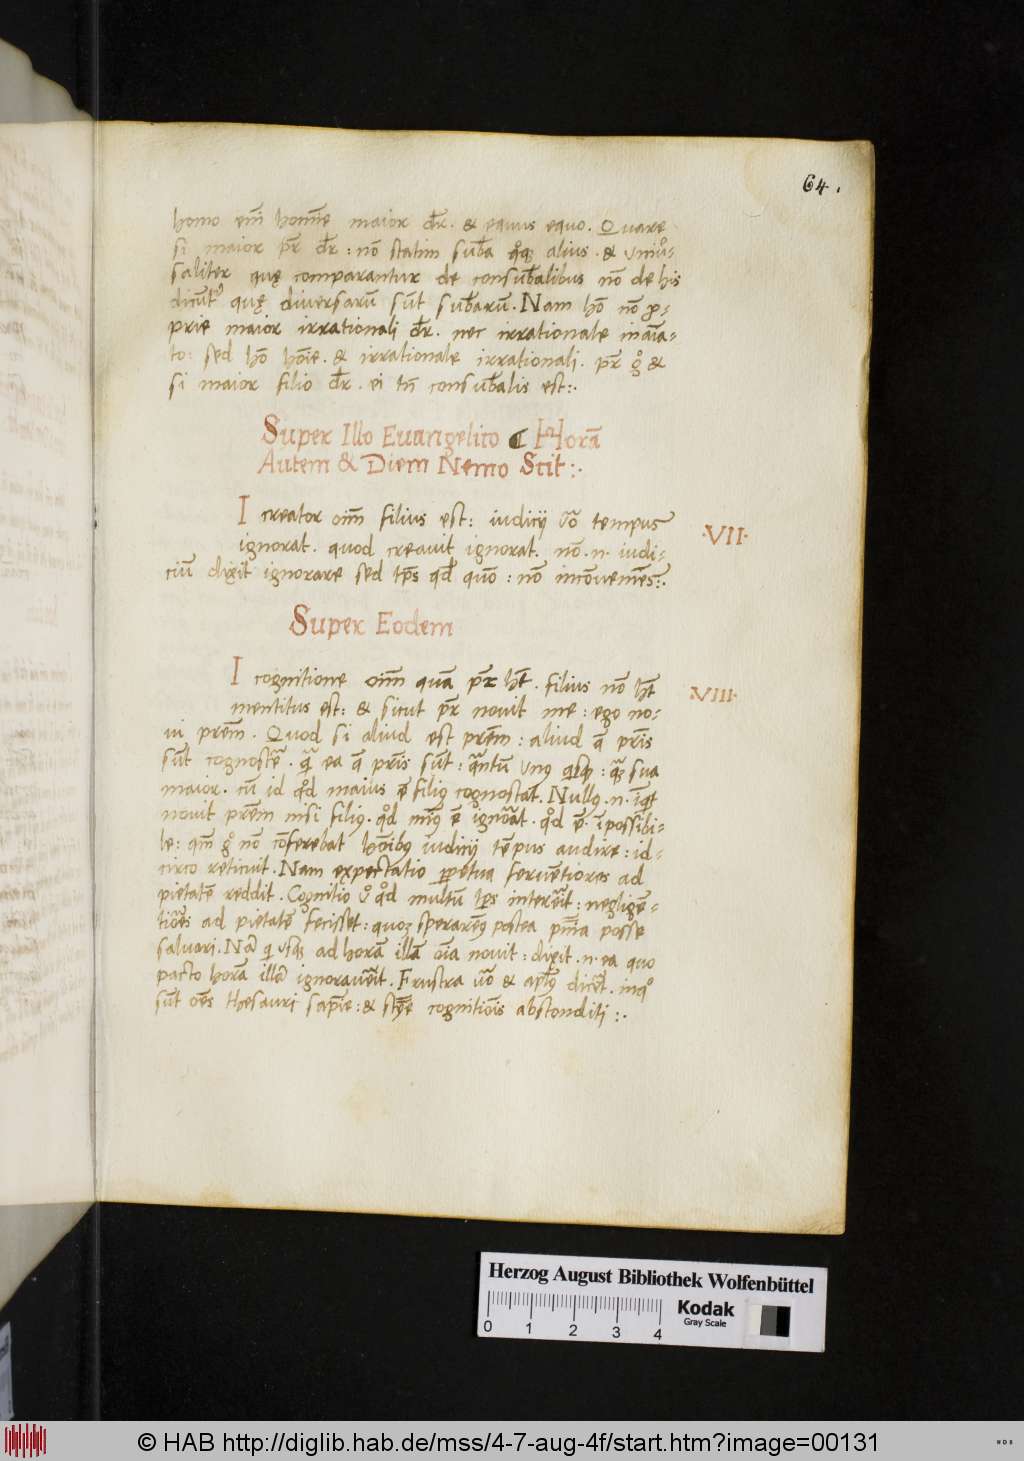 64.
homo em̄ homīe maior dr̄. & equus equo. Quare
si maior pr̄ dr̄: nō statim sub̄a alius. & uniuͦ-
saliter quę comparantur de consub̄alibus nō de his
dicūt quę diversarū sūt sub̄arū. Nam hō nō ꝓ-
prie maior irrationali dr̄. nec irrationale inaīa-
to: sed hō hōie. & irrationale irrationali. pr̄ gͦ &
si maior filio dr̄. ei tn̄ consub̄alis est:.
Super Illo Evangelico Horā
Autem & Diem Nemo Scit:.
I creator oim̄ filius est: iudicij ūo tempus
ignorat. quod creavit ignorat. nō .n. iudi-
ciū dixit ignorare sed tp̄s qd̄ quō: nō incōveniēs:.
·VII·
Super Eodem
I cognitione oim̄ quā pr̄ hēt. filius nō hēt
mentitus est: & sicut pr̄ novit me: ego no-
vi prēm. Quod si aliud est prēm: aliud q̄ pr̄is
·VIII·
sūt cognoscē. ea q̄ pr̄is sūt: quāntū sua
maior. cū id qͦd maius ē filiꝯ cognoscat. Nullꝯ .n. īqt
novit prēm nisi filiꝯ. qͦd ē ignōat. qͦd ē īpossibi-
le: qm̄ gͦ nō cōferebat hōibꝯ iudicij tēpus audire: id-
circo reticuit. Nam expectatio ꝑpetua ferventiores ad
pietatē reddit. Cognitio qͦd multū tp̄s intererit: negligē-
tiōes ad pietatē fecisset: quoꝫ sperarēꝯ postea pnīa posse
salvari. Nā usqꝫ ad horā illā oīa novit: dixit .n. ea quo
pacto horā illā ignoraverit. Frustra ūo & apl̄ꝯ dicēt. inqͦ
sūt oēs thesauri sapīe: & scīę cognitiōis absconditi:.
Herzog August Bibliothek Wolfenbüttel
0 1 2 3 4
Kodak
Gray Scale
© HAB http://diglib.hab.de/mss/4-7-aug-4f/start.htm?image=00131